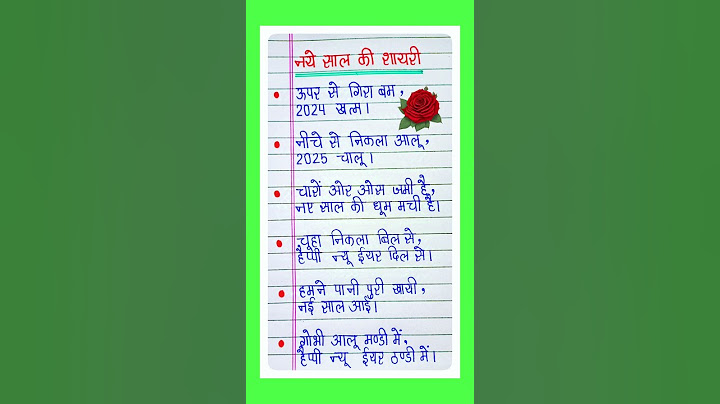 नये साल की शायरी
ऊपर से गिरा बम,
2024 खत्म।
नीचे से निकला आलू,
2025 चालू।
चारों ओर ओस जमी है,
नए साल की धूम मची है।
चूहा निकला बिल से,
हैप्पी न्यू ईयर दिल से।
हमने पानी पुरी खायी,
नई साल आई।
गोभी आलू मण्डी में,
हैप्पी न्यू ईयर ठण्डी में।